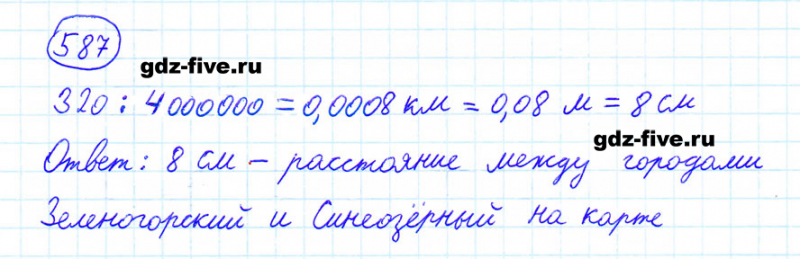 587
gdz-five.ru
320 : 4000000 = 0,0008 км = 0,08 м = 8 см
gdz-five.ru
Ответ: 8 см – расстояние между городами
Зеленогорский и Синеозёрный на карте